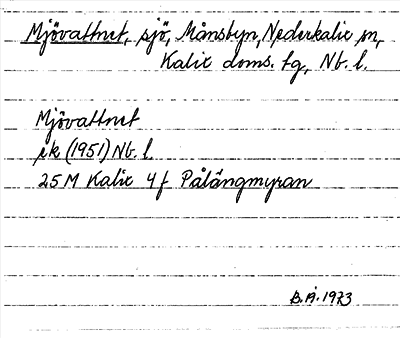 Mjövattnet, sjö, Månsbyn, Nederkalix sn,
Kalix doms. tg, Nb. l.
Mjövattnet
ek (1951) Nb. l.
25 M Kalix 4 f Pålängmyran
B.Å. 1973